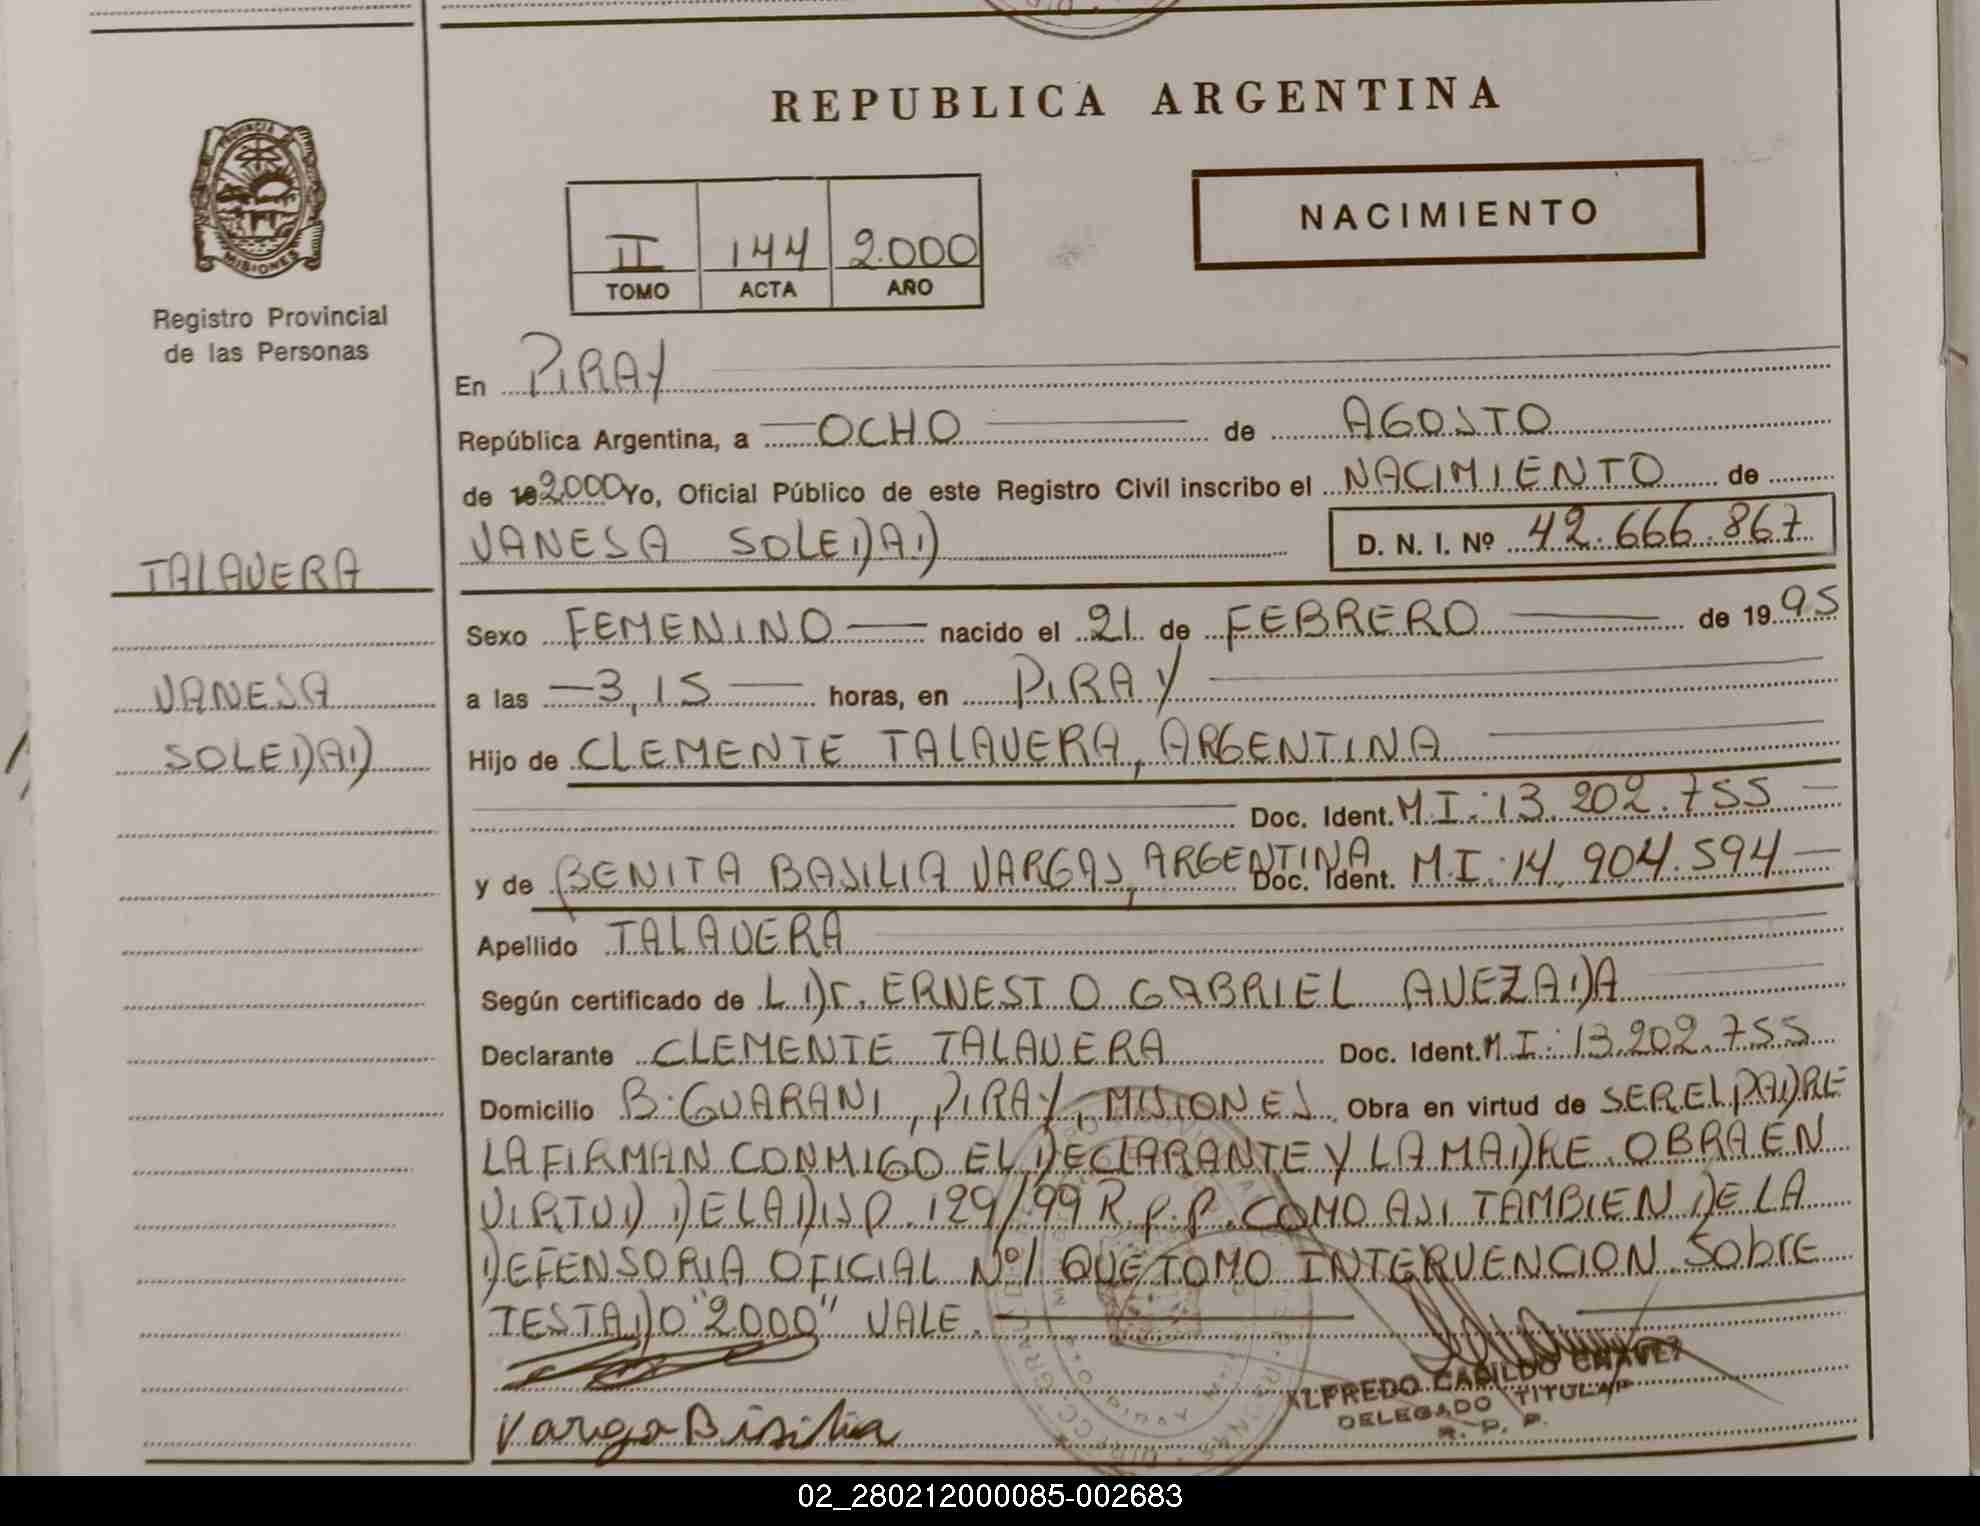 REPUBLICA ARGENTINA
PROVINCIA
MISIONES
Registro Provincial
de las Personas
II 144 2.000
TOMO ACTA AÑO
NACIMIENTO
En PIRAY
República Argentina, a OCHO de AGOSTO
de 19 2.000 Yo, Oficial Público de este Registro Civil inscribo el NACIMIENTO de
VANESA SOLEDAD D. N. I. Nº 42.666.867
TALAVERA
VANESA
SOLEDAD
Sexo FEMENINO nacido el 21 de FEBRERO de 1995
a las 3,15 horas, en PIRAY
Hijo de CLEMENTE TALAVERA, ARGENTINA
Doc. Ident. M.I: 13.202.755
y de BENITA BASILIA VARGAS, ARGENTINA Doc. Ident. M.I: 14.904.594
Apellido TALAVERA
Según certificado de L Dr. ERNESTO GABRIEL AVEZADA
Declarante CLEMENTE TALAVERA Doc. Ident. M.I: 13.202.755
Domicilio B: GUARANI, PIRAY, MISIONES Obra en virtud de SER EL PADRE
LA FIRMAN CONMIGO EL DECLARANTE Y LA MADRE. OBRA EN
VIRTUD DE LA DISP. 129/99 R.P.P. COMO ASI TAMBIEN DE LA
DEFENSORIA OFICIAL Nº1 QUE TOMO INTERVENCION Sobre
TESTADO "2.000" VALE.
ALFREDO CASILDO CHAVEZ
DELEGADO TITULAR
R. P. P.
Varga Bisilia
02_280212000085-002683